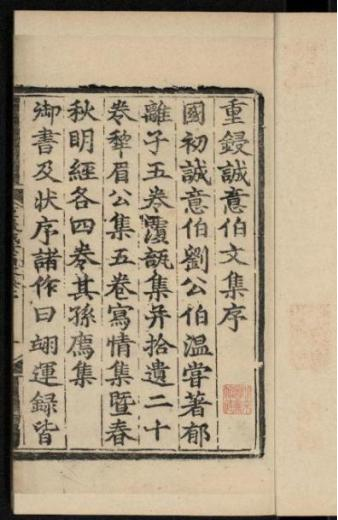 重鋟誠意伯文集序
國初誠意伯劉公伯温嘗著郁
離子五卷覆瓿集并拾遺二十
卷犂眉公集五卷寫情集暨春
秋明經各四卷其孫廌集
御書及狀序諸作曰翊運録皆